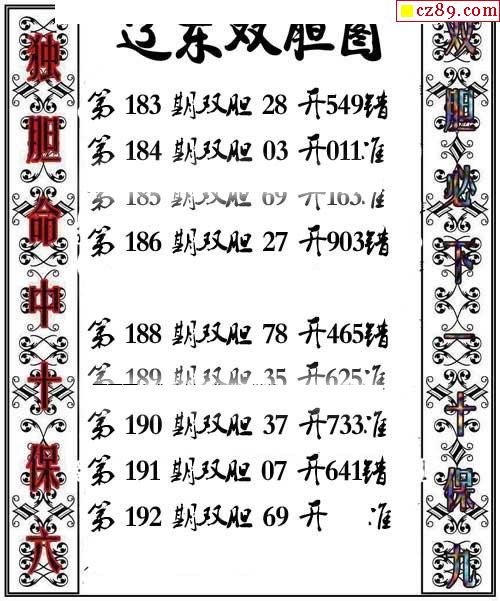 cz89.com
辽东双胆图
独胆命中十保六
第 183 期双胆 28 开549错
第 184 期双胆 03 开011准
第 185 期双胆 69 开163准
第 186 期双胆 27 开903错
第 188 期双胆 78 开465错
第 189 期双胆 35 开625准
第 190 期双胆 37 开733准
第 191 期双胆 07 开641错
第 192 期双胆 69 开 准
双胆必下一十保九